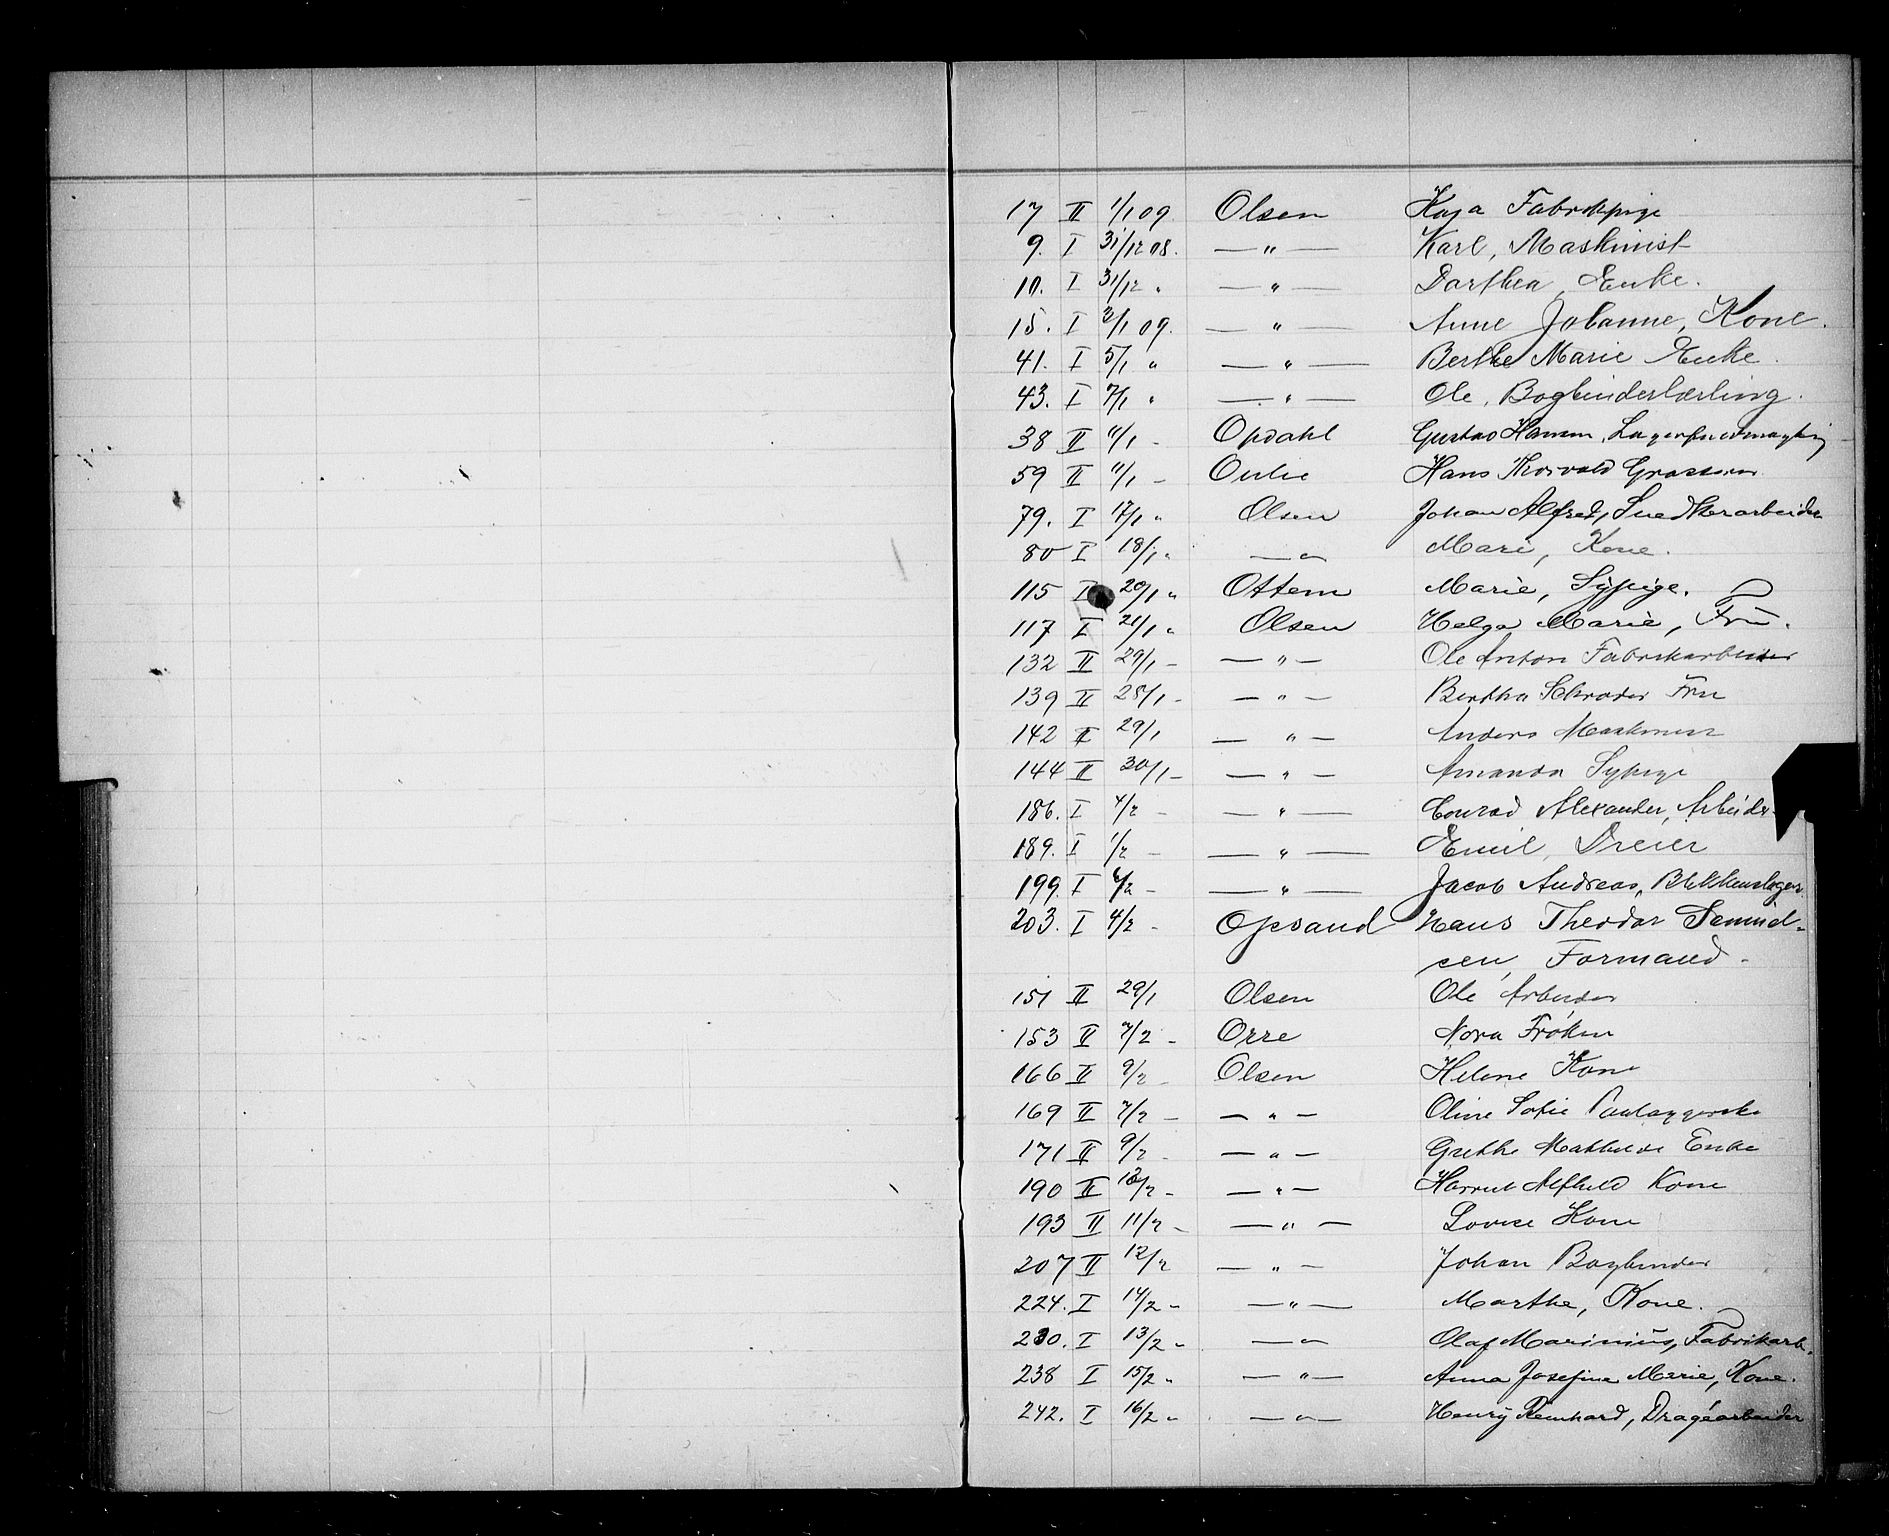 17 II 1/1 09 Olsen Kaja Fabrikpige
9. I 31/12 08. — " — Karl, Maskinist
10. I 31/12 " — " — Dorthea, Enke.
15. I 2/1 09. — " — Anne Johanne, Kone.
41. I 5/1 " — " — Berthe Marie Enke.
43. I 7/1 " — " — Ole, Bogbinderlærling.
38 II 11/1 - Opdahl Gustav Hansen, Lagerfuldmægtig
59 II 11/1 - Hans Thorvald Grosserer
79. I 17/1 " Olsen Johan Alfred, Snedkerarbeider
80 I 18/1 " — " Marie, Kone.
115 I 20/1 " Ottem Marie, Sypige.
117 I 21/1 " Olsen Helga Marie, Fru.
132 II 29/1 - — " — Ole Anton Fabrikarbeider
139 II 28/1 - — " — Bertha Schrøder Fru
142 II 29/1 — " — Anders Maskinist
144 II 30/1 - — " — Amanda Sypige
186. I 4/2 - — " — Conrad Alexander, Arbeider
189. I 1/2 - — " — Emil, Dreier
199. I 6/2 - — " — Jacob Andreas, Blikkenslager
203. I 4/2 - Opsand Hans Theodor Samuel-
sen, Formand.
151 II 29/1 Olsen Ole Arbeider
153 II 7/2 - Orre Nora Frøken
166 II 9/2 - Olsen Helene Kone
169 II 7/2 - — " — Oline Sofie
171 II 9/2 - — " — Grethe Mathilde Enke
190 II 10/2 - — " — Harriet Alfhild Kone
193 II 11/2 - — " — Lovise Kone
207 II 12/2 — " — Johan Bogbinder
224. I 14/2 - — " — Marthe, Kone.
230. I 13/2 " — " Olaf Marinius, Fabrikarb.
238 I 15/2 " — " — Anna Josefine Marie, Kone.
242. I 16/2 " — " — Henry Reinhard, Dragéarbeider